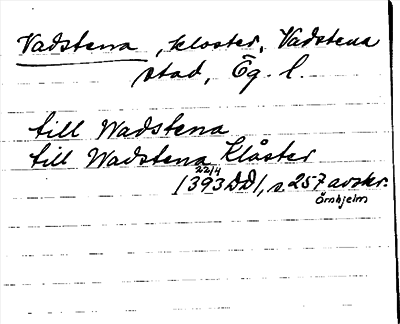 Vadstena, kloster, Vadstena
stad, Ög. l.
till Wadstena
till Wadstena Klåster
22/4
1393 DD1, s 257 avskr.
Örnhjelm